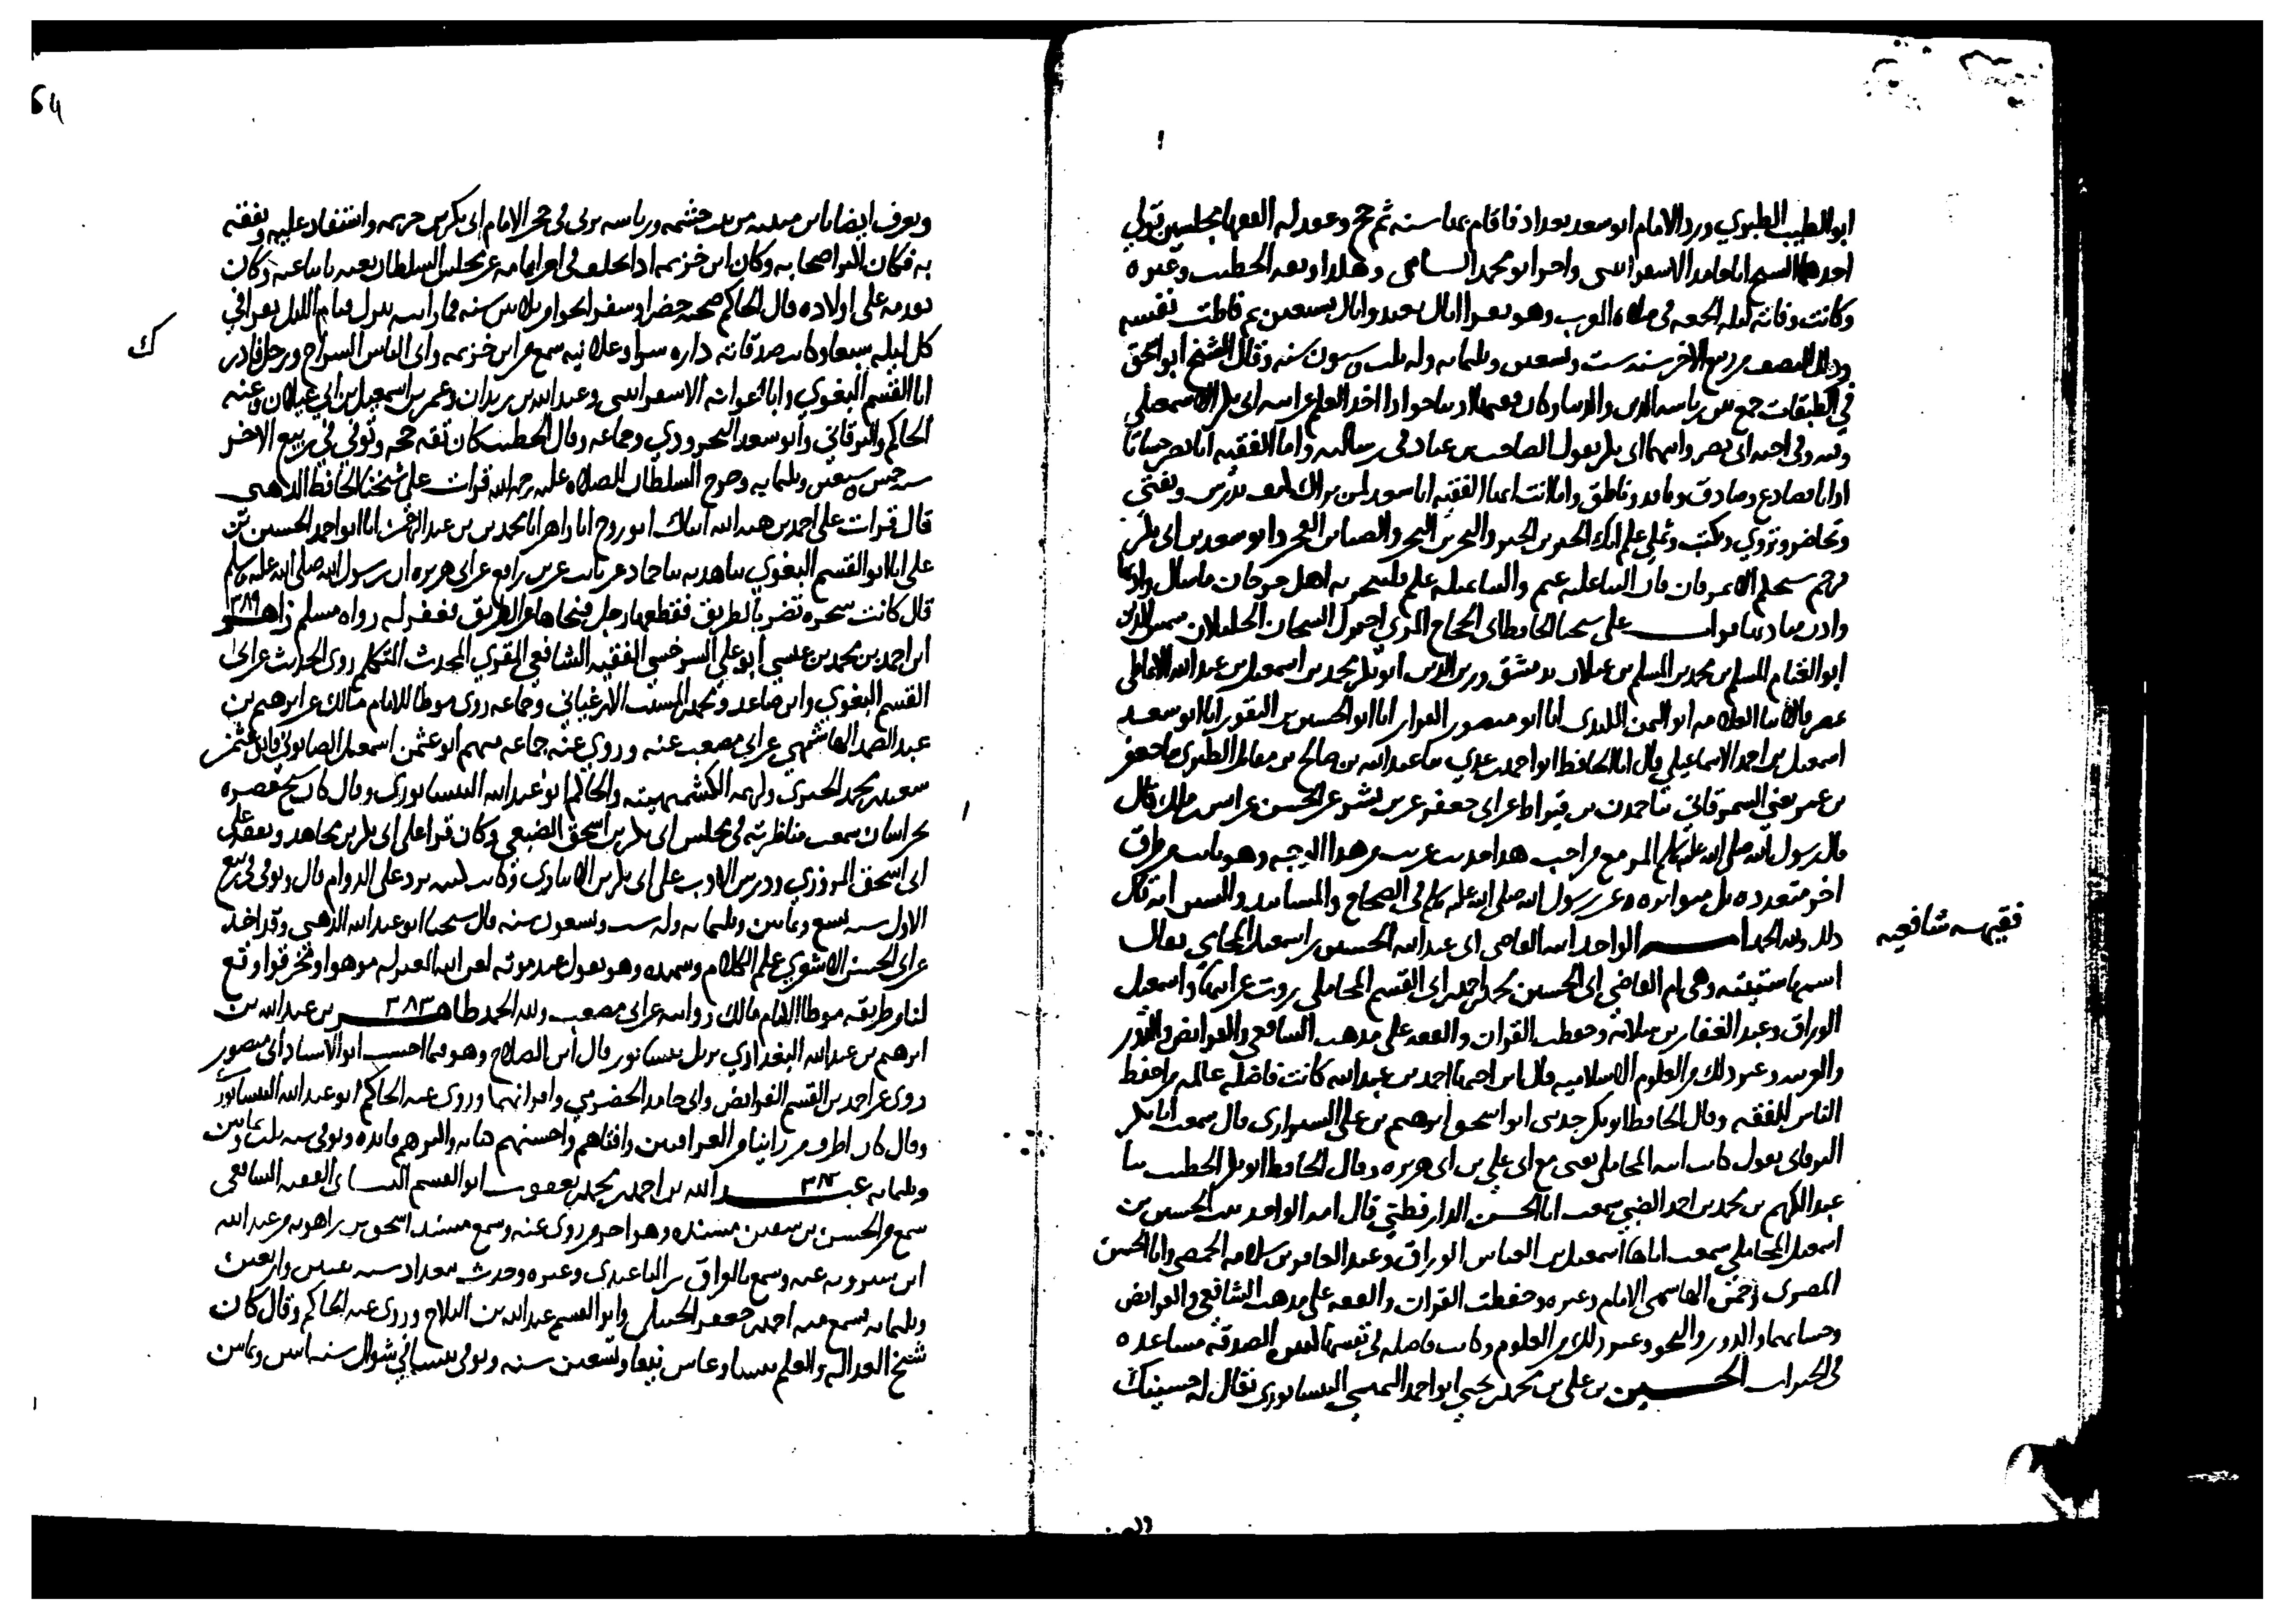 ابو الطيب الطبري ورد الامام ابو سعد بغداد فاقام بها سنه ثم حج وعقد له الفقها مجلسين تولى
احدهما الشيخ ابا حامد الاسفرايني والاخر ابو محمد البافي وغيره
وكانت وفاته ليله الجمعه في صلاه المغرب وهو يقرا اياك نعبد واياك نستعين ثم فاظت نفسه
وذلك للنصف من ربيع الاخر سنه ست وتسعين وثلثمايه وله ثلث وستون سنه وقال الشيخ ابو اسحق
في الطبقات جمع بين رياسه الدين والدنيا وكان فقيها اديبا جوادا اخذ العلم عن ابيه ابي بكر الاسمعيلي
وفيه وفي اخيه ابي نصر وابيهما ابي بكر يقول الصاحب بن عباد في رسالته واما الفقيه ابو نصر
ابو الغنايم المسلم بن محمد بن المسلم بن علان بدمشق وزين الدين ابو بكر محمد بن اسمعيل بن عبد الله الانماطي
بمصر قالا انا العلامه ابو اليمن الكندي انا ابو منصور القزاز انا ابو الحسين بن النقور انا ابو سعد
اسمعيل بن احمد الاسماعيلي قال انا الحافظ ابو احمد بن عدي
قال رسول الله صلى الله عليه وسلم المرء مع من احب هذا حديث غريب من هذا الوجه وهو ثابت من طرق
اخر متعدده بل متواتره عن رسول الله صلى الله عليه وسلم في الصحاح والمسانيد والسنن
ذلك ولله الحمد امه الواحد ابنه القاضي ابي عبد الله الحسين بن اسمعيل المحاملي يقال
اسمها ستيته وهي ام القاضي ابي الحسين محمد بن احمد بن ابي القسم المحاملي روت عن ابيها واسمعيل
الوراق وعبد الغافر بن سلامة وحفظت القران والفقه على مذهب الشافعي والفرايض والدور
والعربيه وغير ذلك من العلوم الاسلاميه كانت فاضله عالمه من احفظ
الناس للفقه وقال الحافظ ابو بكر حدثني ابو اسحق ابرهيم بن علي الشيرازي قال سمعت ابا بكر
البرقاني يقول كانت ابنه المحاملي تفتي مع ابي علي بن ابي هريره وقال الحافظ ابو بكر الخطيب ثنا
عبد الكريم بن محمد بن احمد الضبي سمعت ابا الحسن الدارقطني قال امه الواحد بنت الحسين بن
اسمعيل المحاملي سمعت اباها اسمعيل بن العباس الوراق وعبد الغافر بن سلامه الحمصي وابا الحسن
المصري وحمزه الهاشمي الامام وغيره وحفظت القران والفقه على مذهب الشافعي والفرايض
وحسابها والدور والنحو وغير ذلك من العلوم وكانت فاضله في نفسها كثيره الصدقه مساعده
في الخيرات الحسين بن علي بن محمد بن يحيى ابو احمد التميمي النيسابوري يقال له حسينك
فقيهه شافعيه
ويعرف ايضا بابن منينه من بيت حشمه ورياسه ربي في حجر الامام ابي بكر بن خزيمه واستفاد عليه وتفقه
به فكان اكبر اصحابه وكان ابن خزيمه اذا تخلف في اخر ايامه عن مجلس السلطان بعثه نايبا عنه وكان
يقدمه على اولاده قال الحاكم صحبته حضرا وسفرا نحوا من ثلاثين سنه فما رايته يترك قيام الليل يقرا في
كل ليله سبعا وكانت صدقاته داره سرا وعلانيه سمع من ابن خزيمه وابي العباس السراج ورحل فادرك
ابا القسم البغوي وابا عوانه الاسفرايني وعبد الله بن زيدان وعمر بن اسمعيل بن ابي غيلان وعنه
الحاكم والبرقاني وابو سعد الكنجرودي وجماعه وقال الخطيب كان ثقه حجه وتوفي في ربيع الاخر
سنه خمس وسبعين وثلثمايه وخرج السلطان للصلاه عليه رحمه الله قرات على شيخنا الحافظ الذهبي
قال قرات على احمد بن هبه الله انباك ابو روح انا زاهر انا محمد بن عبد الرحمن انا ابو احمد الحسين بن
علي انا ابو القسم البغوي ثنا هدبه ثنا حماد عن ثابت عن ابي رافع عن ابي هريره ان رسول الله صلى الله عليه وسلم
قال كانت شجره تضر بالطريق فقطعها رجل فنحاها عن الطريق فغفر له رواه مسلم زاهر ٣٨٩
ابن احمد بن محمد بن عيسى ابو علي السرخسي الفقيه الشافعي المقري المحدث المتكلم روى الحديث عن ابي
القسم البغوي وابن صاعد ومحمد بن المسيب الارغياني وجماعه روى موطا للامام مالك عن ابرهيم بن
عبد الصمد الهاشمي عن ابي مصعب عنه وروى عنه جماعه منهم ابو عثمن اسمعيل الصابوني وابو عثمن
سعيد بن محمد البحيري وكريمه الكشميهنيه والحاكم ابو عبد الله النيسابوري وقال كان شيخ عصره
بخراسان سمعت مناظرته في مجلس ابي بكر بن اسحق الضبعي وكان قرا على ابي بكر بن مجاهد وتفقه على
ابي اسحق المروزي ودرس الادب على ابي بكر بن الانباري وكانت كتبه ترد علي الدوام قال وتوفي في ربيع
الاول سنه تسع وثمانين وثلثمايه وله ست وتسعون سنه قال شيخنا ابو عبد الله الذهبي وقد اخذ
عن ابي الحسن الاشعري علم الكلام وشهده وهو يقول عند موته لعن الله المعتزله موهوا ومخرقوا وقع
لنا من طريقه موطا الامام مالك روايه عن ابي مصعب ولله الحمد طاهر ٣٨٣ بن عبد الله بن
ابرهيم بن عبد الله البغدادي نزيل نيسابور قال ابن الصلاح وهو فيما احسب ابو الاستاذ ابي منصور
روى عن احمد بن القسم الفرايضي وابي حامد الحضرمي واقرانهما وروى عنه الحاكم ابو عبد الله النيسابوري
وقال كان اظرف من راينا من العراقيين وافتاهم واحسنهم كتابه واكثرهم فايده وتوفي سنه ثلث وثمانين
وثلثمايه عبد الله ٣٨٢ بن احمد بن محمد بن يعقوب ابو القسم النسايي الفقيه الشافعي
سمع من الحسن بن سفين مسنده وهو اخر من روى عنه وسمع مسند اسحق بن راهويه من عبد الله
ابن شيرويه عنه وسمع بالعراق من الباغندي وغيره وحدث ببغداد
وثلثمايه سمع منه احمد بن جعفر الختلي وابو القسم عبد الله بن الثلاج وروى عنه الحاكم وقال كان
شيخ العداله والعلم بنسا وعاش نيفا وتسعين سنه وتوفي بنسا في شوال سنه اثنين وثمانين
ك